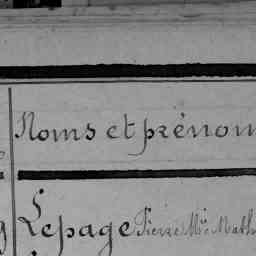 Noms et prénom
Lepage Pierre M^ie Math